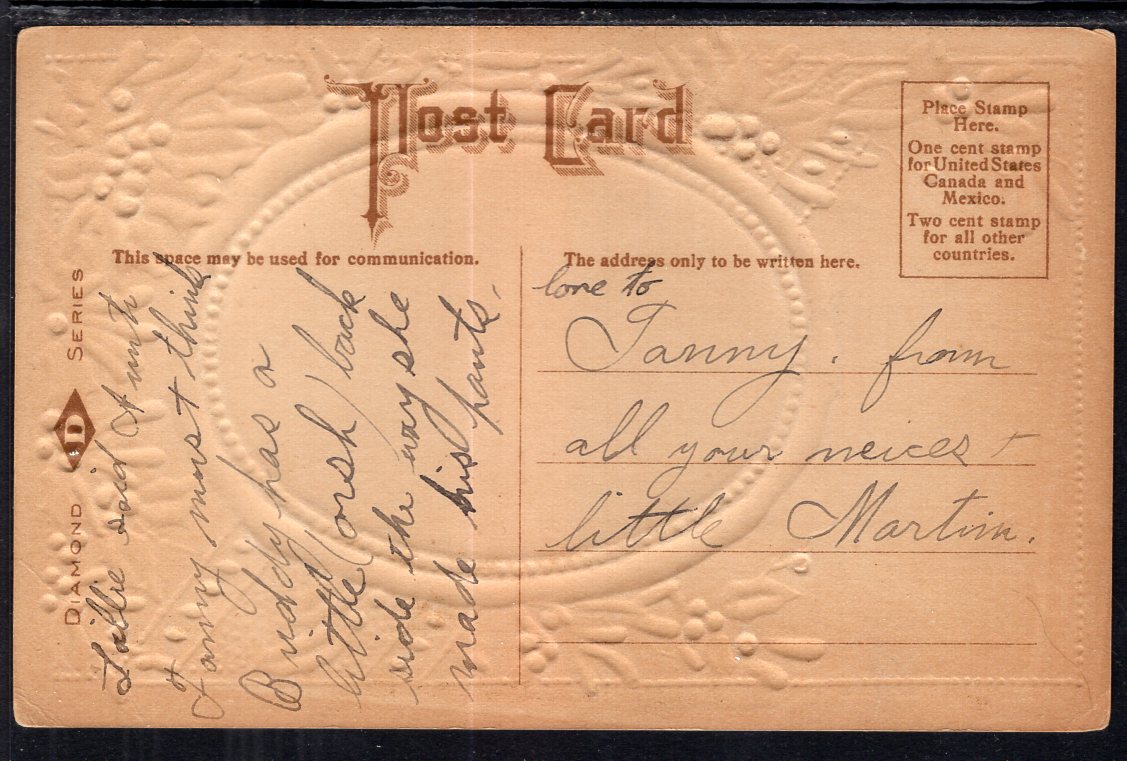 Post Card
Place Stamp
Here.
One cent stamp
for United States
Canada and
Mexico.
Two cent stamp
for all other
countries.
This space may be used for communication.
The address only to be written here.
DIAMOND D SERIES
Lillie said Aunt
Fanny must think
Buddy has a
little (orsh) back
side the way she
made his pants.
love to
Fanny. from
all your neices +
little Martin.